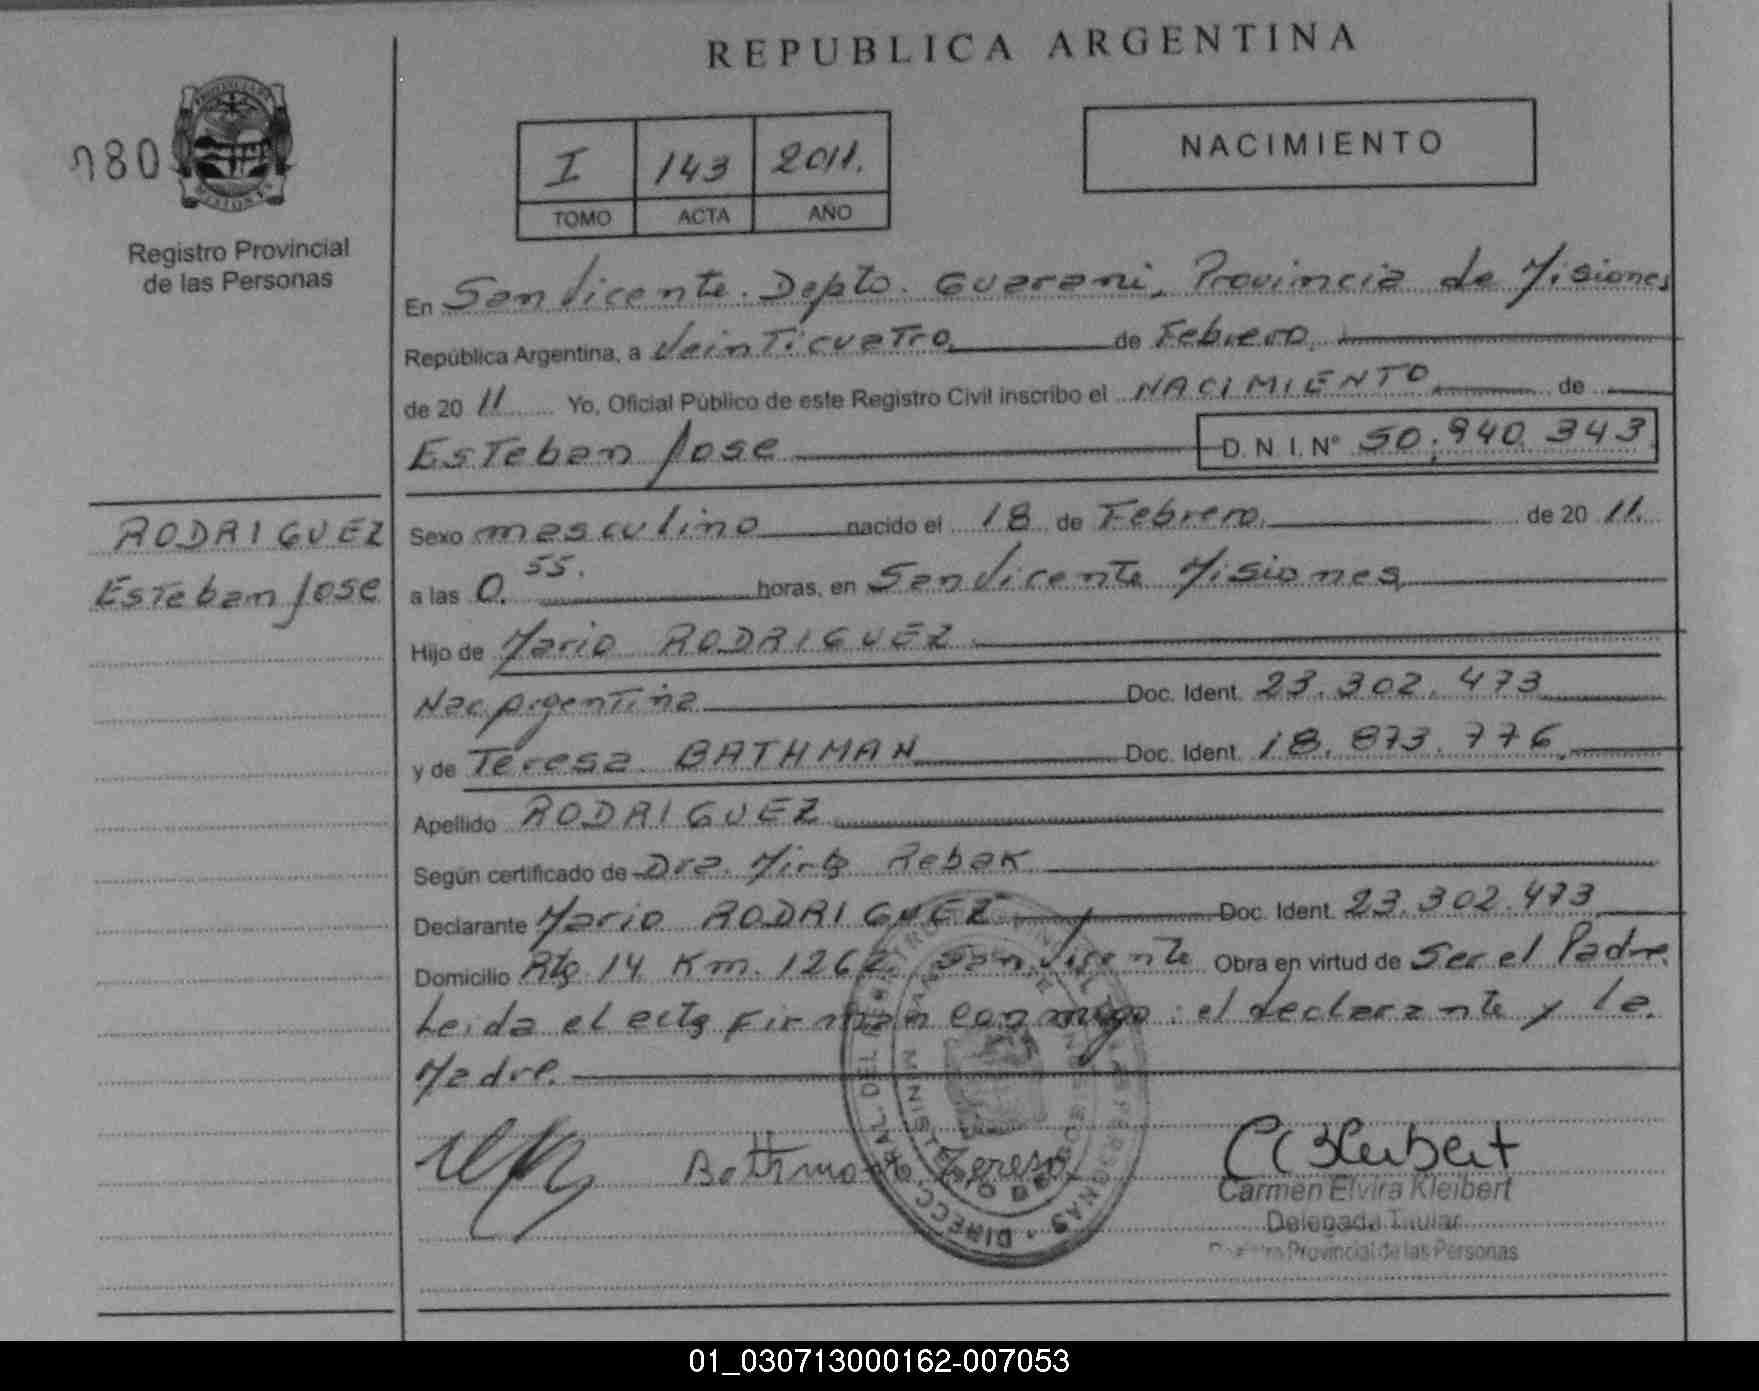 REPUBLICA ARGENTINA
080
Registro Provincial
de las Personas
I 143 2011.
TOMO ACTA AÑO
NACIMIENTO
En San Vicente. Depto. Guarani, Provincia de Misiones
República Argentina, a Veinticuatro de Febrero.
de 20 11 Yo, Oficial Público de este Registro Civil inscribo el NACIMIENTO de
Esteban Jose D. N. I. N° 50.940.343
RODRIGUEZ
Esteban Jose
Sexo masculino nacido el 18 de Febrero de 20 11.
a las 0.55. horas, en San Vicente Misiones
Hijo de Mario RODRIGUEZ
Nac Argentina Doc. Ident. 23.302.473
y de Teresa BATHMAN Doc. Ident. 18.873.776
Apellido RODRIGUEZ
Según certificado de Dra. Mirta Rebak
Declarante Mario RODRIGUEZ Doc. Ident. 23.302.473
Domicilio Rta 14 Km. 1262 San Vicente Obra en virtud de Ser el Padre.
Leida el acta firman conmigo: el declarante y la
Madre.
Teresa
Carmen Elvira Kleibert
Delegada Titular
Registro Provincial de las Personas
01_030713000162-007053